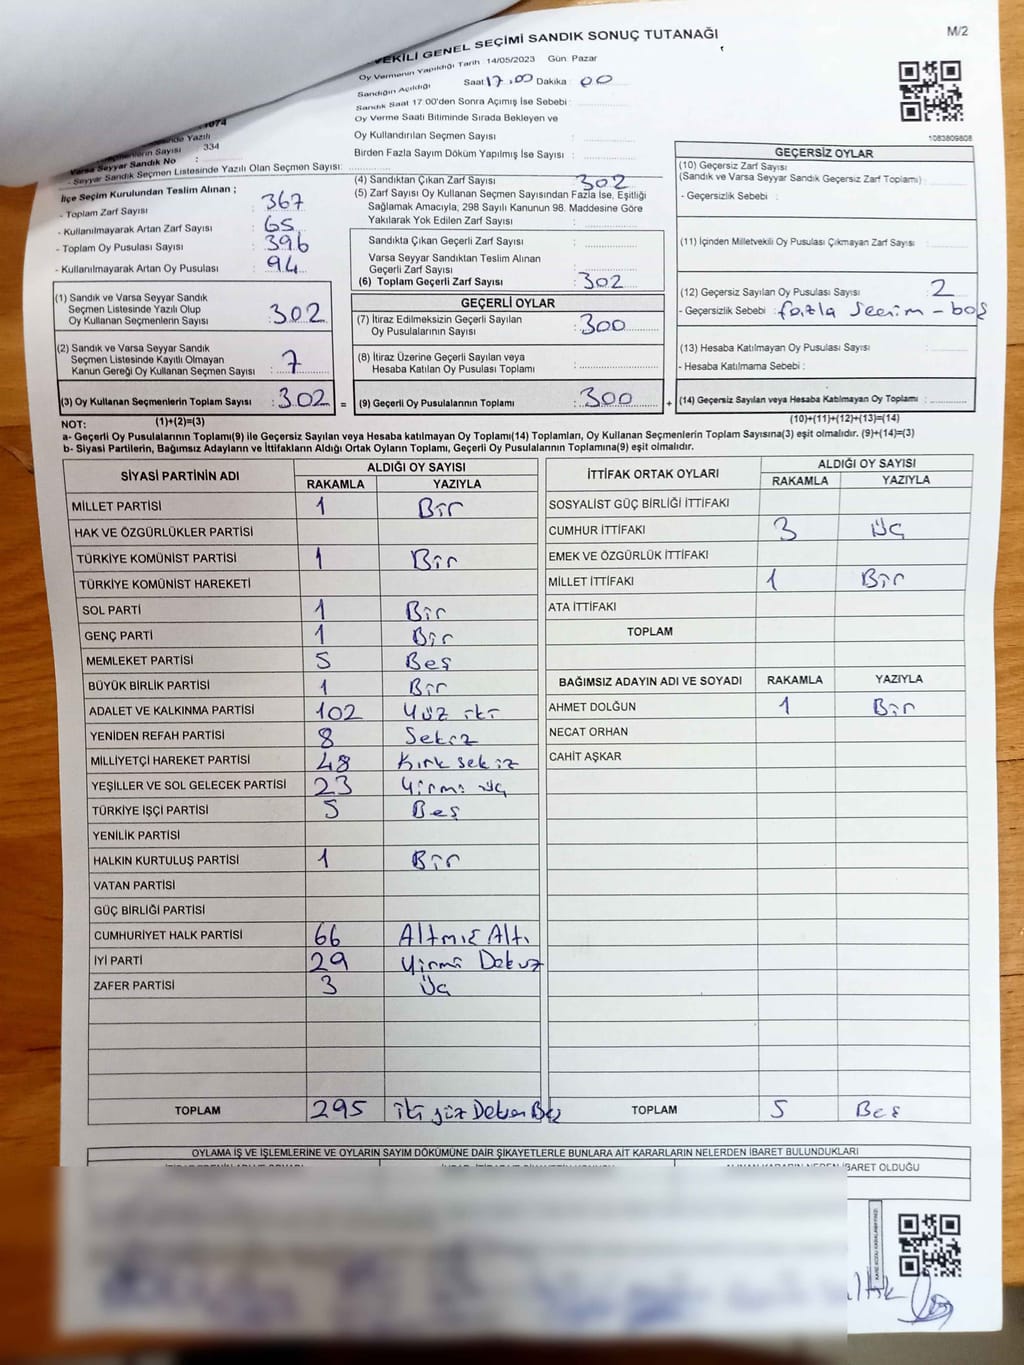 VEKİLİ GENEL SEÇİMİ SANDIK SONUÇ TUTANAĞI
M/2
Oy Vermenin Yapıldığı Tarih 14/05/2023 Gün Pazar
Sandığın Açıldığı Saat 17.00 Dakika 00
Sandık Saat 17:00'den Sonra Açımış İse Sebebi :
Oy Verme Saati Bitiminde Sırada Bekleyen ve
Oy Kullandırılan Seçmen Sayısı :
Birden Fazla Sayım Döküm Yapılmış İse Sayısı :
1083809808
1074
Yazılı
Sayısı : 334
Varsa Seyyar Sandık No :
- Seyyar Sandık Seçmen Listesinde Yazılı Olan Seçmen Sayısı:
İlçe Seçim Kurulundan Teslim Alınan ;
- Toplam Zarf Sayısı : 367
- Kullanılmayarak Artan Zarf Sayısı : 65
- Toplam Oy Pusulası Sayısı : 396
- Kullanılmayarak Artan Oy Pusulası : 94
(1) Sandık ve Varsa Seyyar Sandık
Seçmen Listesinde Yazılı Olup
Oy Kullanan Seçmenlerin Sayısı : 302
(2) Sandık ve Varsa Seyyar Sandık
Seçmen Listesinde Kayıtlı Olmayan
Kanun Gereği Oy Kullanan Seçmen Sayısı : 7
(3) Oy Kullanan Seçmenlerin Toplam Sayısı : 302 =
(1)+(2)=(3)
(4) Sandıktan Çıkan Zarf Sayısı : 302
(5) Zarf Sayısı Oy Kullanan Seçmen Sayısından Fazla İse, Eşitliği
Sağlamak Amacıyla, 298 Sayılı Kanunun 98. Maddesine Göre
Yakılarak Yok Edilen Zarf Sayısı :
Sandıkta Çıkan Geçerli Zarf Sayısı :
Varsa Seyyar Sandıktan Teslim Alınan
Geçerli Zarf Sayısı :
(6) Toplam Geçerli Zarf Sayısı : 302
GEÇERLİ OYLAR
(7) İtiraz Edilmeksizin Geçerli Sayılan
Oy Pusulalarının Sayısı : 300
(8) İtiraz Üzerine Geçerli Sayılan veya
Hesaba Katılan Oy Pusulası Toplamı :
(9) Geçerli Oy Pusulalarının Toplamı : 300 +
GEÇERSİZ OYLAR
(10) Geçersiz Zarf Sayısı
(Sandık ve Varsa Seyyar Sandık Geçersiz Zarf Toplamı) :
- Geçersizlik Sebebi :
(11) İçinden Milletvekili Oy Pusulası Çıkmayan Zarf Sayısı :
(12) Geçersiz Sayılan Oy Pusulası Sayısı : 2
- Geçersizlik Sebebi : fazla Seçim - boş
(13) Hesaba Katılmayan Oy Pusulası Sayısı :
- Hesaba Katılmama Sebebi :
(14) Geçersiz Sayılan veya Hesaba Katılmayan Oy Toplamı :
(10)+(11)+(12)+(13)=(14)
NOT:
a- Geçerli Oy Pusulalarının Toplamı(9) ile Geçersiz Sayılan veya Hesaba katılmayan Oy Toplamı(14) Toplamları, Oy Kullanan Seçmenlerin Toplam Sayısına(3) eşit olmalıdır. (9)+(14)=(3)
b- Siyasi Partilerin, Bağımsız Adayların ve İttifakların Aldığı Ortak Oyların Toplamı, Geçerli Oy Pusulalarının Toplamına(9) eşit olmalıdır.
SİYASİ PARTİNİN ADI ALDIĞI OY SAYISI
RAKAMLA YAZIYLA
MİLLET PARTİSİ 1 Bir
HAK VE ÖZGÜRLÜKLER PARTİSİ
TÜRKİYE KOMÜNİST PARTİSİ 1 Bir
TÜRKİYE KOMÜNİST HAREKETİ
SOL PARTİ 1 Bir
GENÇ PARTİ 1 Bir
MEMLEKET PARTİSİ 5 Beş
BÜYÜK BİRLİK PARTİSİ 1 Bir
ADALET VE KALKINMA PARTİSİ 102 Yüz iki
YENİDEN REFAH PARTİSİ 8 Sekiz
MİLLİYETÇİ HAREKET PARTİSİ 48 Kırk sekiz
YEŞİLLER VE SOL GELECEK PARTİSİ 23 Yirmi üç
TÜRKİYE İŞÇİ PARTİSİ 5 Beş
YENİLİK PARTİSİ
HALKIN KURTULUŞ PARTİSİ 1 Bir
VATAN PARTİSİ
GÜÇ BİRLİĞİ PARTİSİ
CUMHURİYET HALK PARTİSİ 66 Altmış Altı
İYİ PARTİ 29 Yirmi Dokuz
ZAFER PARTİSİ 3 Üç
TOPLAM 295 iki yüz Doksan Beş
İTTİFAK ORTAK OYLARI ALDIĞI OY SAYISI
RAKAMLA YAZIYLA
SOSYALİST GÜÇ BİRLİĞİ İTTİFAKI
CUMHUR İTTİFAKI 3 Üç
EMEK VE ÖZGÜRLÜK İTTİFAKI
MİLLET İTTİFAKI 1 Bir
ATA İTTİFAKI
TOPLAM
BAĞIMSIZ ADAYIN ADI VE SOYADI RAKAMLA YAZIYLA
AHMET DOLĞUN 1 Bir
NECAT ORHAN
CAHİT AŞKAR
TOPLAM 5 Beş
OYLAMA İŞ VE İŞLEMLERİNE VE OYLARIN SAYIM DÖKÜMÜNE DAİR ŞİKAYETLERLE BUNLARA AİT KARARLARIN NELERDEN İBARET BULUNDUKLARI
İBARET OLDUĞU